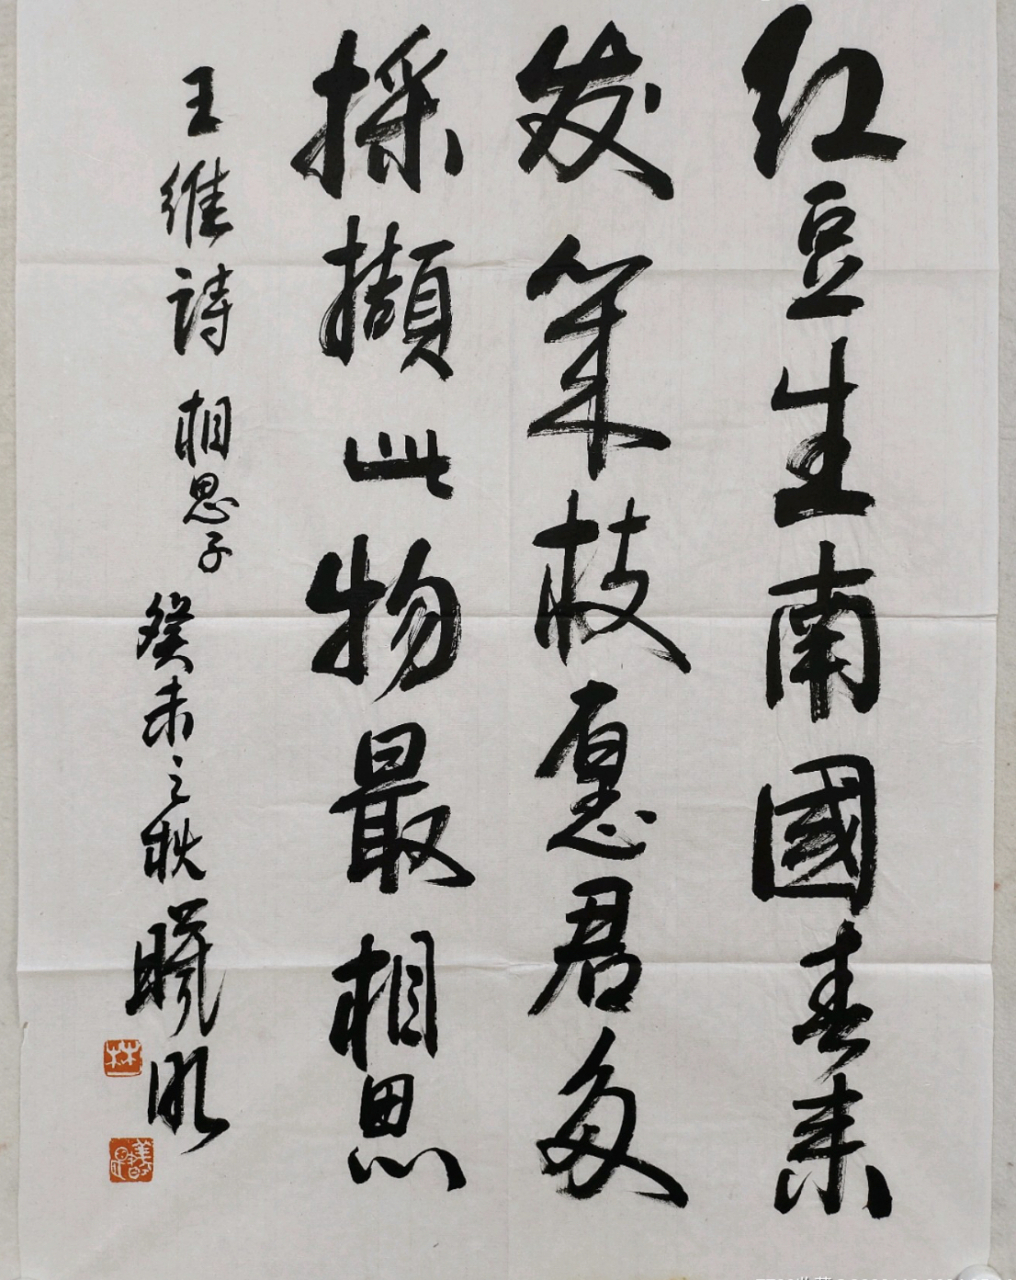 红豆生南國春来
发枝愿君多
採擷此物最相思
王維詩 相思子 癸未之秋 曦明
林